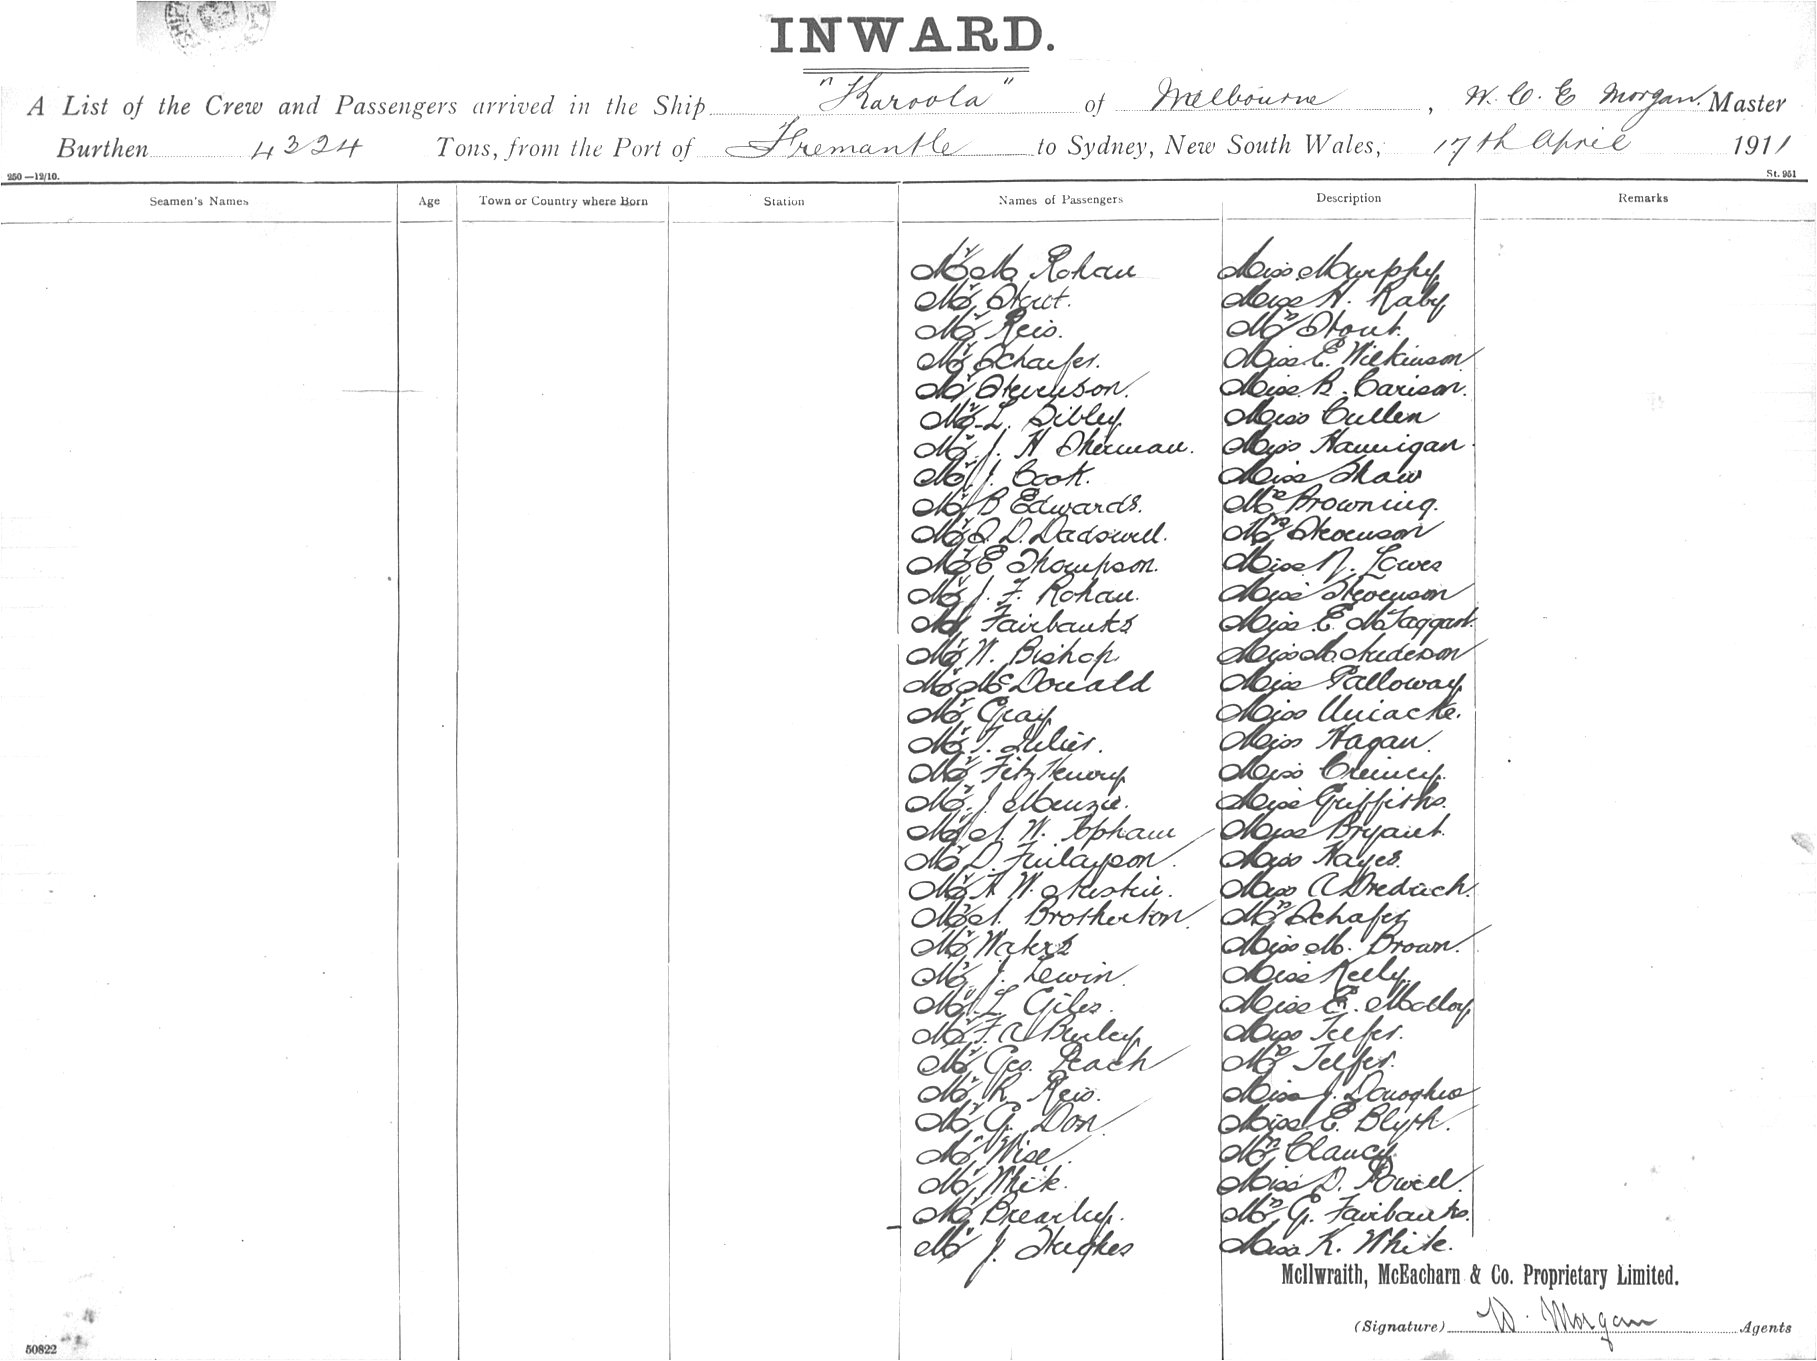 INWARD.
A List of the Crew and Passengers arrived in the Ship "Karoola" of Melbourne, W. C. E Morgan. Master
Burthen 4324 Tons, from the Port of Fremantle to Sydney, New South Wales, 17th April 1911
250—12/10. St. 951
Seamen's Names Age Town or Country where Born Station Names of Passengers Description Remarks
Mr M. Rohan Miss Murphy
Mr Miss H. Raby
Mr Reis. Mrs Stout.
Mr Schaefer. Miss E. Wilkinson
Mr Stevenson. Miss B. Carison.
Mr L. Sibley Miss Cullen
Mr J. H Sherman. Miss Hannigan.
Mr J. Cook. Miss Shaw
Mr B Edwards. Mrs Browning.
Mr S. D. Dadswell. Mrs Stevenson
Mr E Thompson. Miss N. Lowes
Mr J. F. Rohan. Miss Stevenson
Mr Fairbanks Miss E. McTaggart.
Mr W. Bishop Miss M. Anderson
Mr McDonald Miss Galloway
Mr Gray Miss Uniacke.
Mr T. Miss Hagan.
Mr FitzHenry Miss
Mr J. Menzie. Miss Griffiths.
Mr A. W. Topham Miss Bryant.
Mr D. Finlayson. Miss Hayes.
Mr H. W. Austin. Miss A
Mr A. Brotherton Mrs Schafer
Mr Waters Miss M. Brown.
Mr J. Lewin Miss Kelly
Mr L Giles. Miss E. Molloy
Mr F. A Burley Miss Telfer.
Mr Geo. Peach Mrs Telfer.
Mr R. Reis. Miss J. Donoghue
Mr G. Don Miss E. Blyth.
Mr Wise Mrs Clancy
Mr White. Miss D. Powell.
Mr Brearley. Mrs G. Fairbanks.
Mr J. Hughes Miss K. White.
McIlwraith, McEacharn & Co. Proprietary Limited.
(Signature) W. Morgan Agents
50822